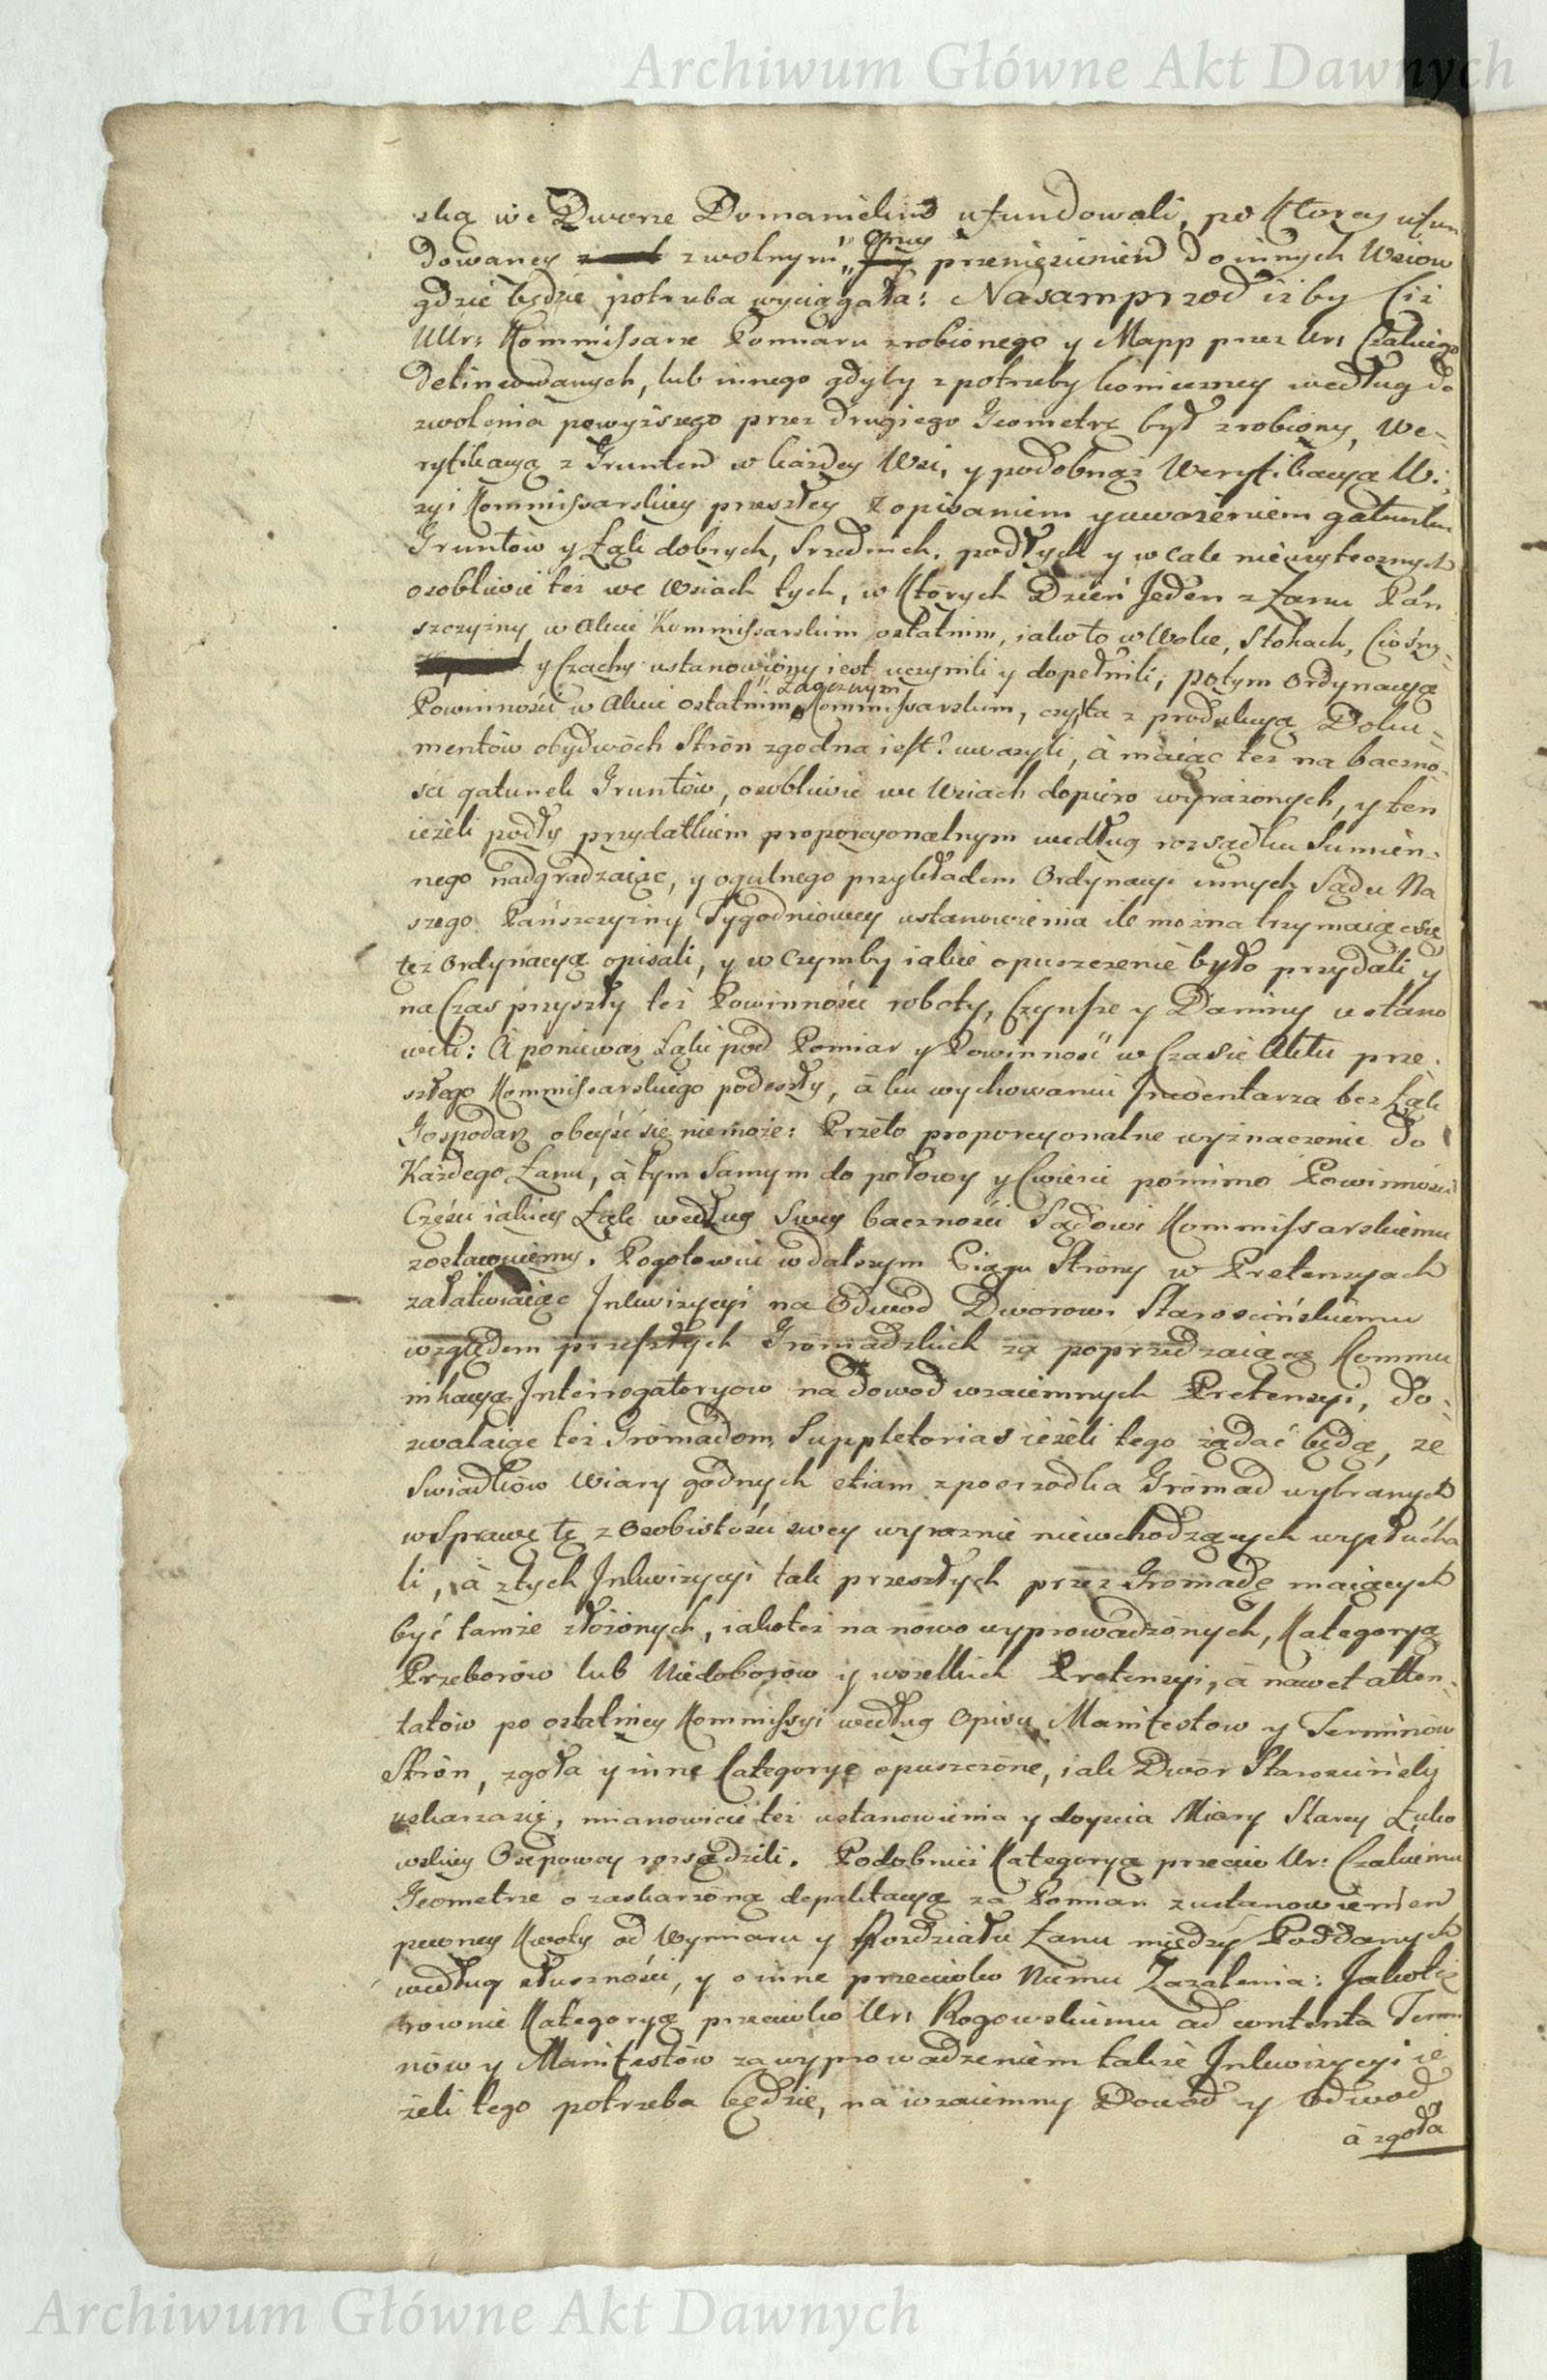 Archiwum Główne Akt Dawnych
ską we Dworze Domanickim ufundowali, po Ktorey ufun
dowaney z wolnym Oney przeniesieniem do innych Wsiow
gdzie będzie potrzeba wyciągała: Nasamprzod iżby Ciż
UUr: Kommissarze Pomiaru zrobionego y Mapp przez Ur: Czakiego
delineowanych, lub innego gdyby z potrzeby konieczney według do
zwolenia powyższego przez drugiego Geometrę był zrobiony, We-
ryfikacyą z Gruntem w każdey Wsi, y podobnąż Weryfikacyą Wi-
zyi Kommissarskiey przeszłey z opisaniem y uwożeniem gatunku
Gruntow y Łąk dobrych, srzednich, podłych y w cale nieużytecznych
osobliwie też we Wsiach tych, w Ktorych Dzień Jeden z Łanu Pań
szczyzny w Akcie Kommissarskim ostatnim, iako to w Wolce, Stokach, Ciośny
y Czachy ustanowiony iest uczynili y dopełnili; potym Ordynacyą
Powinności w Akcie ostatnim Zaocznym Kommissarskim, czyta z produkcyą Doku-
mentów obydwóch Strón zgodna iest? uważyli, à maiąc też na baczno-
ści gatunek Gruntów, osobliwie we Wsiach dopiero wyrażonych, y ten
ieżeli podły przydatkiem proporcyonalnym według rozsądku Sumien-
nego nadgradzaiąc, y ogulnego przykładem Ordynacyi innych Sądu Na
szego Pańszczyzny Tygodniowey ustanowienia ile można trzymaiąc się
też Ordynacyą opisali, y w czymby iakie opuszczenie było przydali y
na Czas przyszły też Powinności roboty, Czynsze y Daniny ustano
wili: A ponieważ Łąki pod Pomiar y Powinność w Czasie Aktu prze-
szłego Kommissarskiego podeszły, à ku wychowaniu Inwentarza bez Łąk
Gospodarz obeyść się niemoże: Przeto proporcyonalne wyznaczenie do
Każdego Łanu, à tym samym do połowy y Cwierci pomimo Powinności
Części iakiey Łąk według swey baczności Sądowi Kommissarskiemu
zostawuiemy. Pogotowiu w dalszym Ciągu Strony w Pretensyach
załatwiaiąc Inkwizycyi na Odwod Dworowi Starościńskiemu
względem przeszłych Gromadzkich za poprzedzaiącą Kommu
nikacyą Interrogatoryow na dowod wzaiemnych Pretensyi, do-
zwalaiąc też Gromadom Suppletorias ieżeli tego żądać będą, ze
Swiadków Wiary godnych etiam z poszrodka Gromad wybranych
w Sprawę tę z Osobistości swey wyraznie niewchodzących wysłucha
li, à z tych Inkwizycyi tak przeszłych przez Gromadę maiących
być tamże złożonych, iakoteż na nowo wyprowadzonych, Kategoryą
Przeborów lub Niedoborow y wszelkich Pretensyi, à nawet atten-
tatów po ostatniey Kommissyi według Opisu Manifestow y Terminów
Strón, zgoła y inne Kategorye opuszczone, iak Dwór Starościński
uskarza się, mianowicie też ustanowienia y doyscia Miary Starey Łuko
wskiey Osepowey rozsądzili. Podobnież Kategoryą przeciw Ur: Czakiemu
Geometrze o zaskarżoną depaktacyą za Pomiar z ustanowieniem
pewney Kwoty od Wymiaru y Rozdziału Łanu między Poddanych
według słuszności, y o inne przeciwko Niemu Zażalenia: Jakoteż
rownie Kategoryą przeciwko Ur: Rogowskiemu ad contenta Termi
nów y Manifestów za wyprowadzeniem także Inkwizycyi ie
żeli tego potrzeba będzie, na wzaiemny Dowod y Odwod,
à zgoła
Archiwum Główne Akt Dawnych